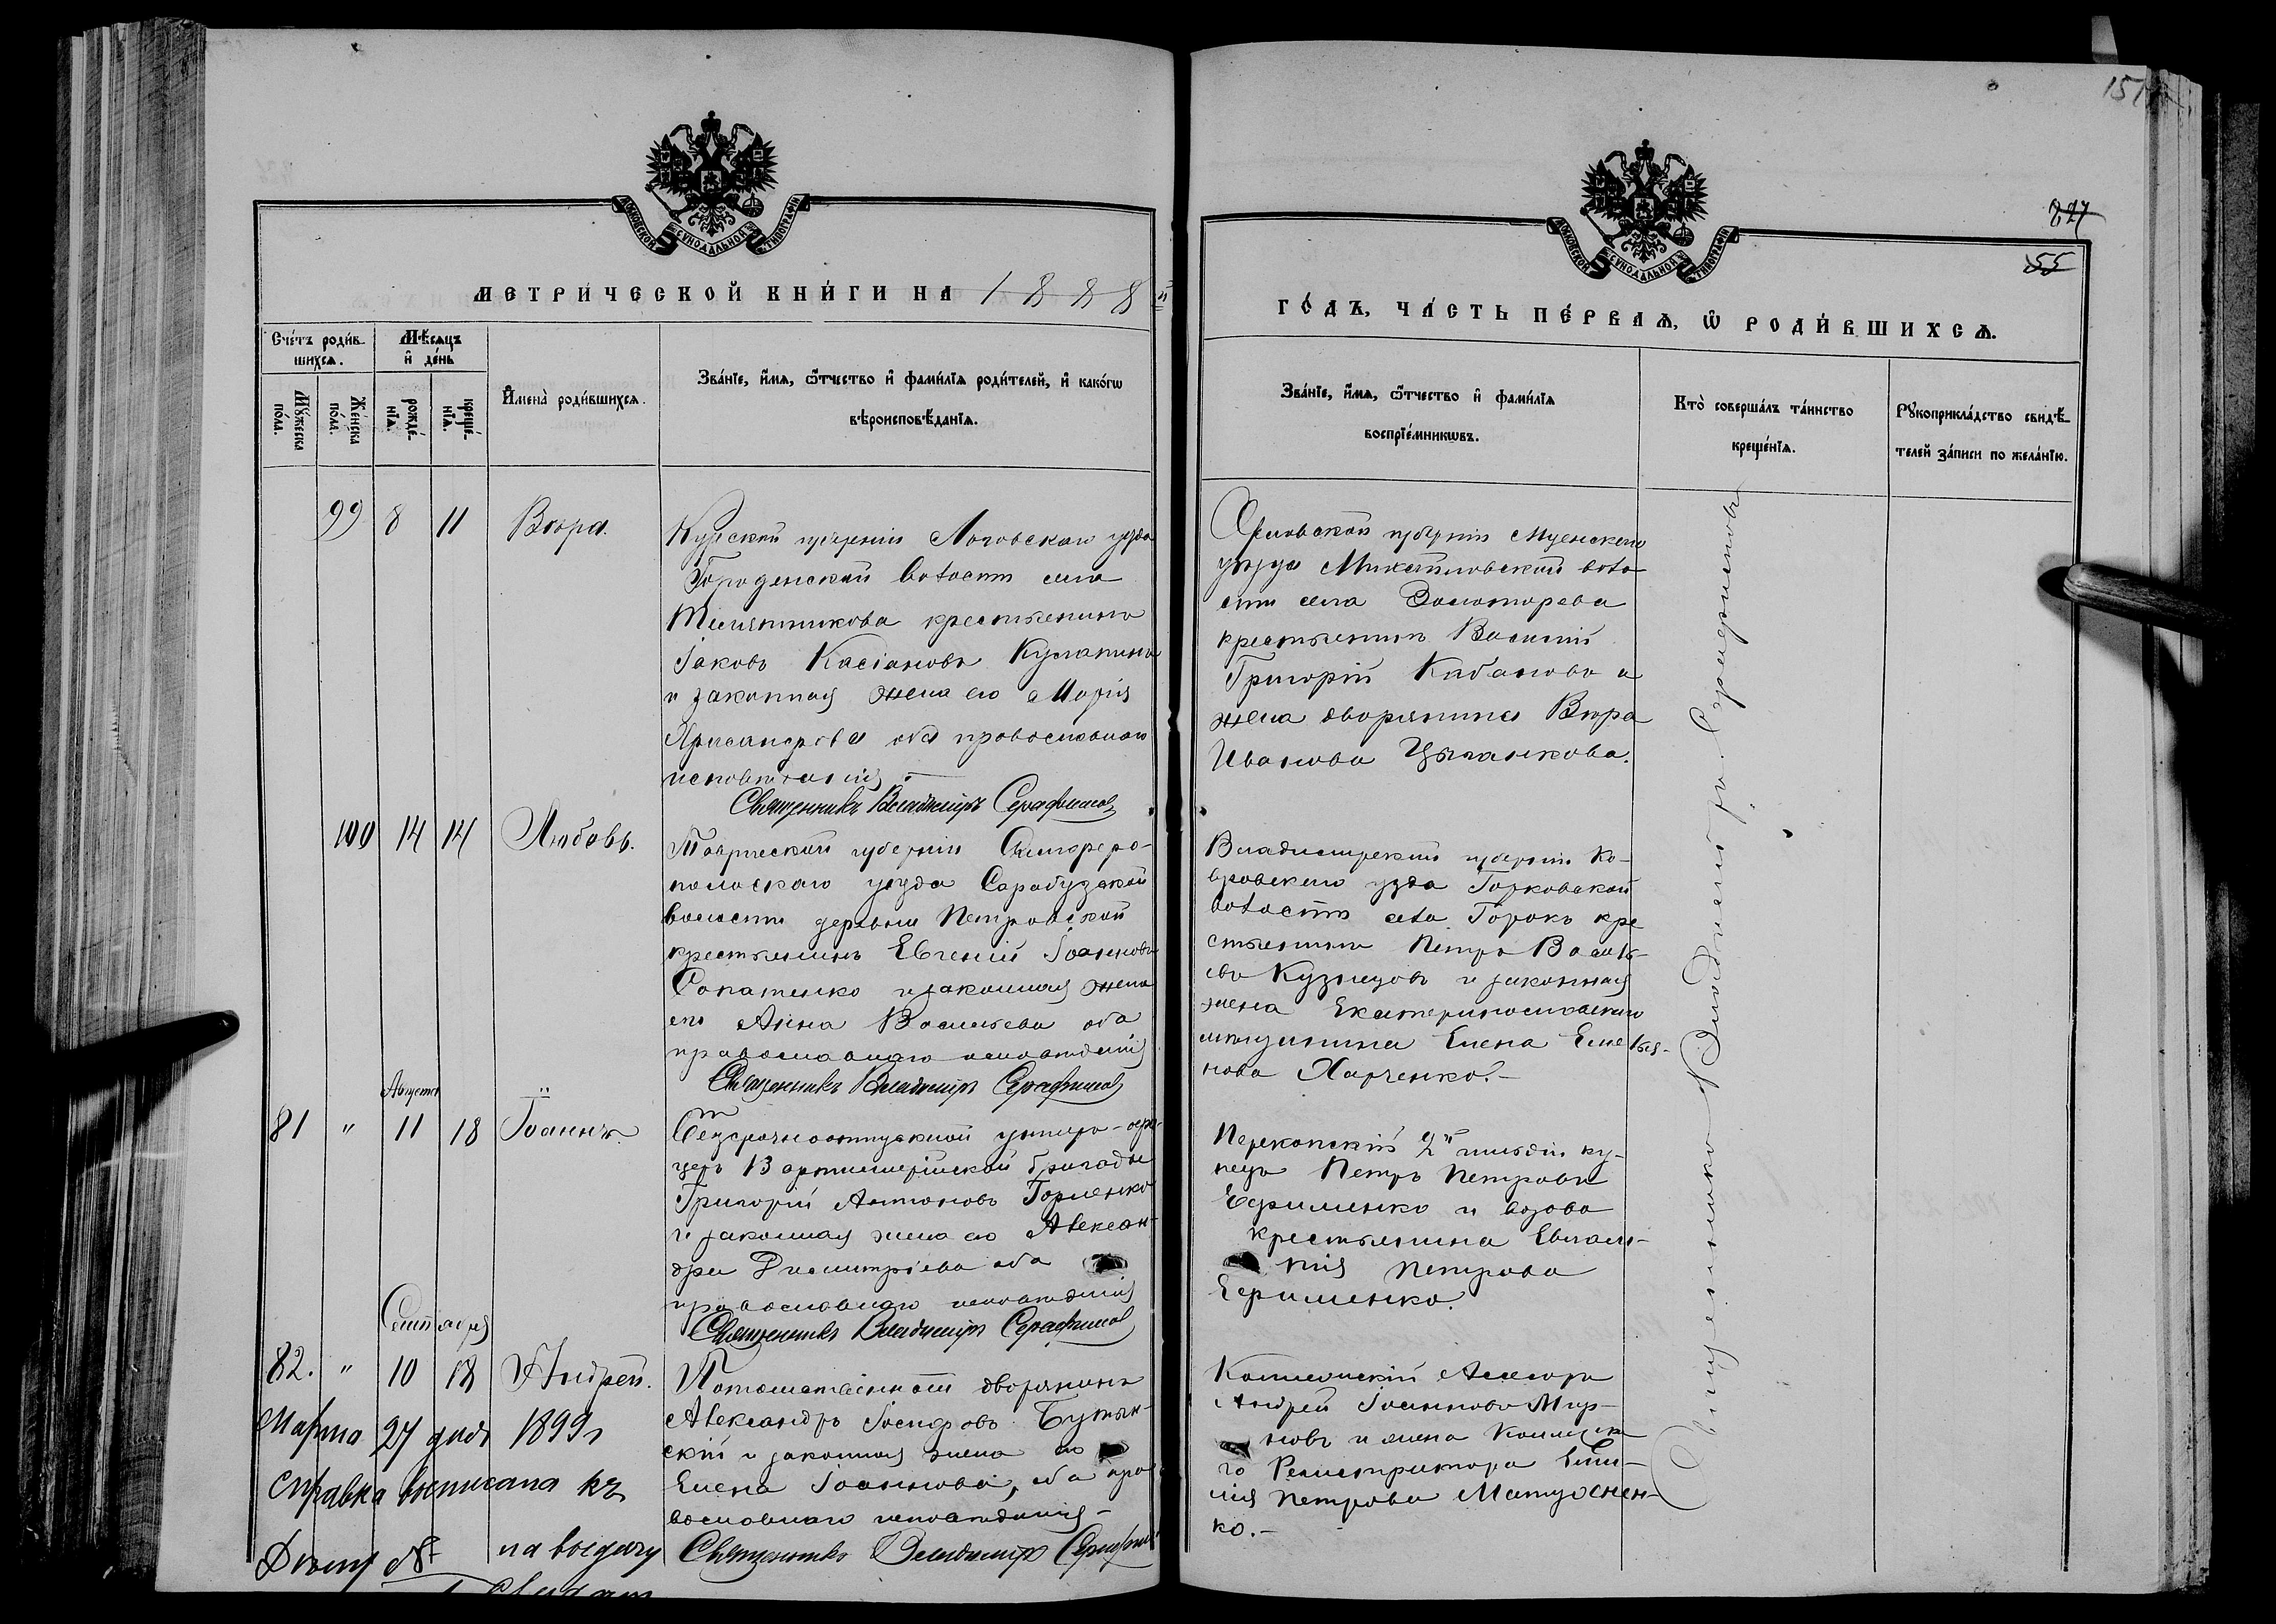 151
827
55
МОСКОВСКОЙ СѴНОДАЛЬНОЙ ТИПОГРАФІИ
МОСКОВСКОЙ СѴНОДАЛЬНОЙ ТИПОГРАФІИ
МЕТРИ́ЧЕСКОЙ КНИ́ГИ НА 1888й
ГО́ДЪ, ЧА́СТЬ ПЕ́РВАѦ, Ѽ РОДИ́ВШИХСѦ.
Сче́тъ роди́в-
шихсѧ.
Мѣ́сѧцъ
и҆ де́нь
Мꙋ́жеска
по́ла.
Же́нска
по́ла.
рожде́-
нїѧ.
креще́-
нїѧ.
И҆мена̀ роди́вшихсѧ.
Зва́нїе, и҆́мѧ, ѻ҆́тчество и҆ фами́лїѧ роди́телей, и҆ како́гѡ
вѣроисповѣ́данїѧ.
Зва́нїе, и҆́мѧ, ѻ҆́тчество и҆ фами́лїѧ
воспрїе́мникѡвъ.
Кто̀ соверша́лъ та́инство
креще́нїѧ.
Рꙋкоприкла́дство свидѣ́-
телей за́писи по жела́нїю.
99 8 11 Вѣра.
Курской губерніи Льговскаго уѣзда
Городенской волости села
крестьянинъ
Іаковъ Касіановъ
и законная жена его Марія
оба православнаго
исповѣданія.
Священникъ Владиміръ Серафимовъ
Орловской губерніи Мценскаго
уѣзда воло-
сти села Золоторева
крестьянинъ Василій
Григорій Кабановъ и
жена дворянина Вѣра
Иванова Цыганкова.
100 14 14 Любовь.
Таврической губерніи Симферо-
польскаго уѣзда Сарабузской
волости деревни Петровской
крестьянинъ Евгеній Іоанновъ
и законная жена
его Анна Васильева оба
православнаго исповѣданія
Священникъ Владиміръ Серафимовъ
Владимірской губерніи Ко-
вровскаго уѣзда Горковской
волости села Горокъ кре
стьянинъ Петръ Василь-
евъ Кузнецовъ и законная
жена Екатеринославскаго
мѣщанина Елена Емелья-
нова Харченко.-
Августа
81 " 11 18 Іоаннъ.
Безсрочноотпускной унтеръ-офи-
церъ 13 артиллерійской бригады
Григорій Антоновъ Горленко
и законная жена его Алексан-
дра Димитріева оба
православнаго исповѣданія
Священникъ Владиміръ Серафимовъ
Перекопскій 2й гильдіи ку-
пецъ Петръ Петровъ
Ефименко и вдова
крестьянина Евлам-
пія Петрова
Ефименко.
Сентября
82. " 10 18 Андрей.
Потомственный дворянинъ
Александръ Іосифовъ
и законная жена его
Елена Іоаннова, оба пра
вославнаго исповѣданія-
Священникъ Владиміръ Серафимовъ
Коллежскій Асессоръ
Андрей Іоанновъ Мир-
новъ и жена Коллежска
го Регистратора Еми-
лія Петрова Матушен-
ко.-
Марта 27 дня 1899 г
справка выписана къ
дѣлу № на выдачу
Священникъ Владиміръ Серафимовъ